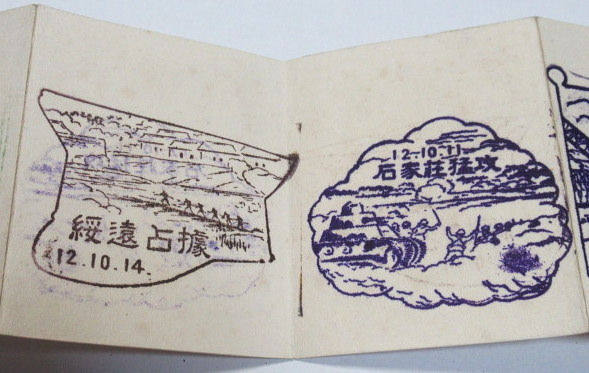 綏遠占據
12.10.14.
12-10-11
石家莊猛攻